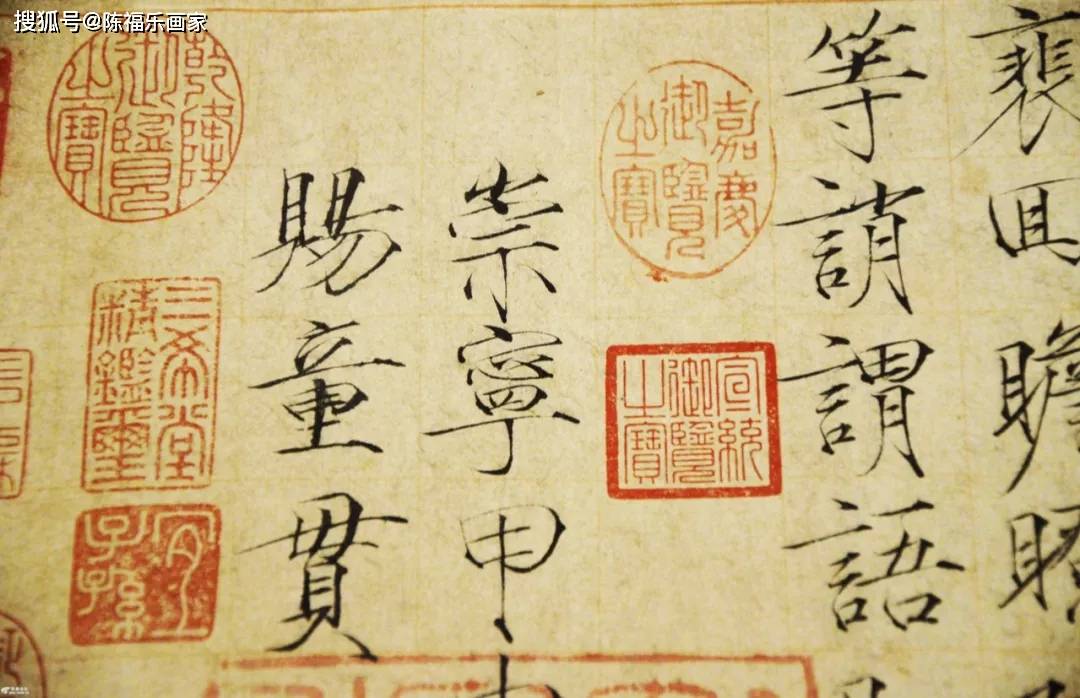 搜狐号@陈福乐画家
裵回瞻眺
等誚謂語
嘉慶
御覽
之寶
宣統
御覽
之寶
崇寧甲
賜童貫
乾隆
御覽
之寶
三希堂
精鑑璽
宜
子孫